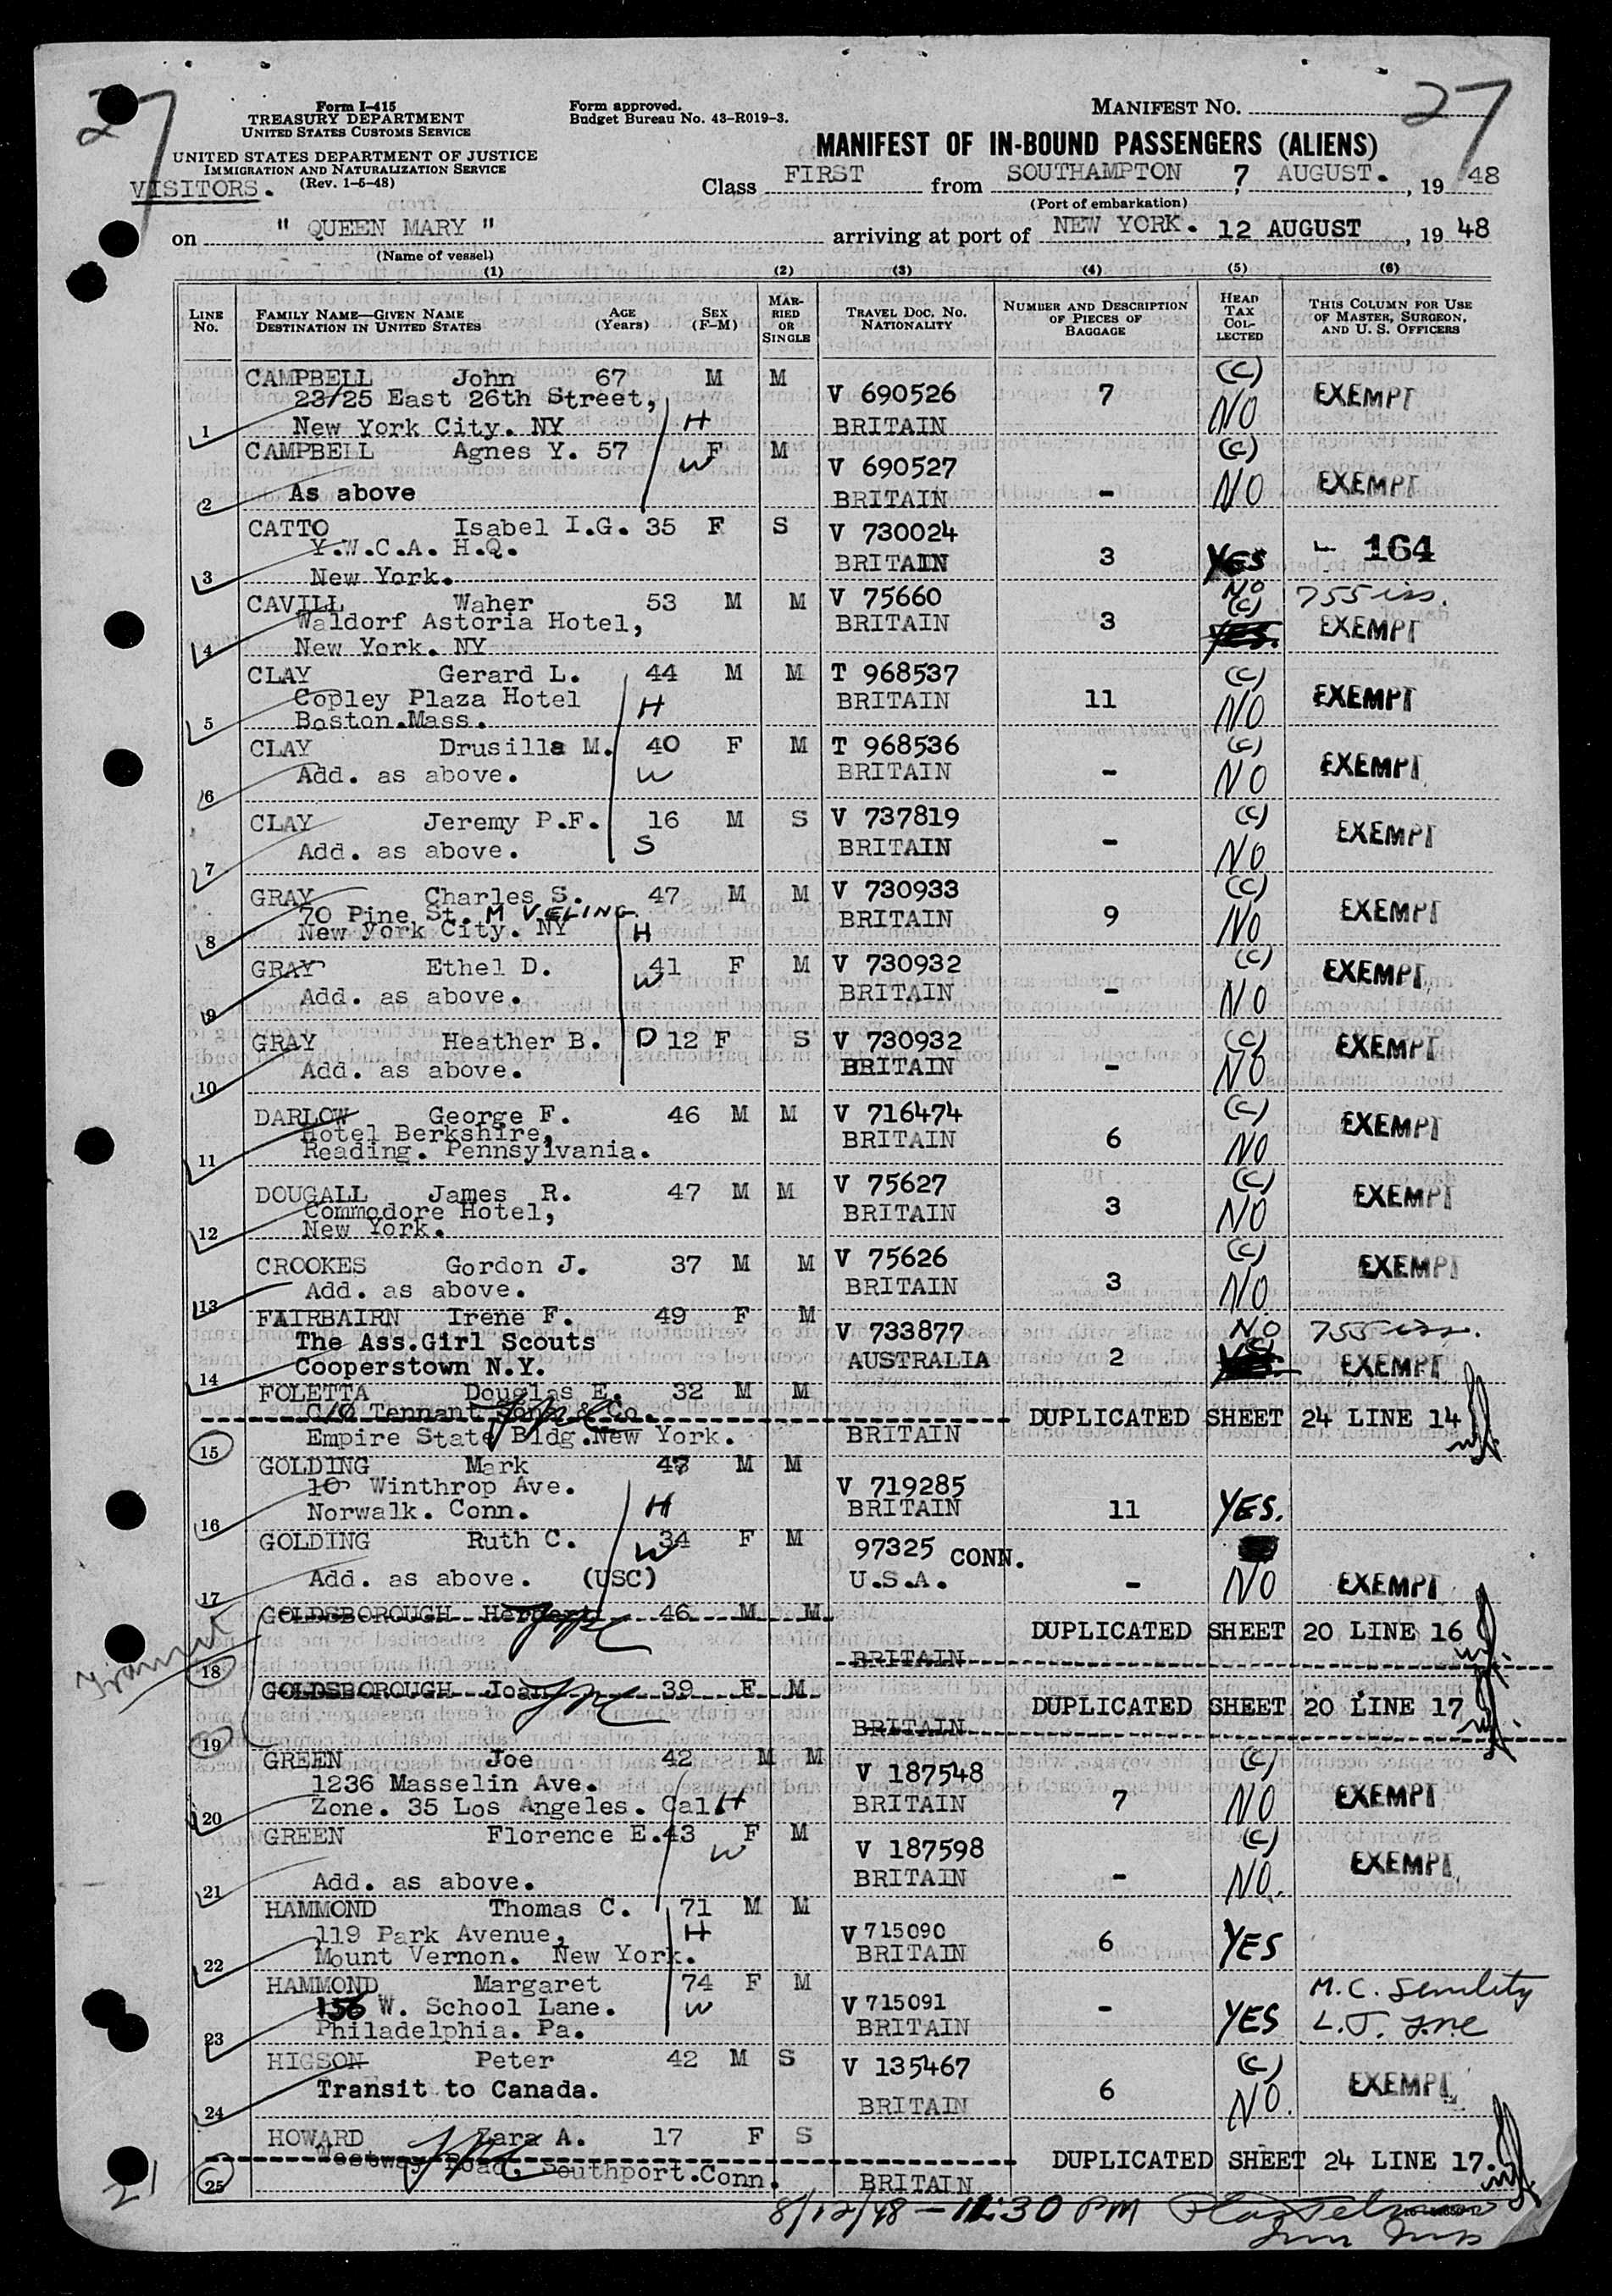 27
Form I-415
TREASURY DEPARTMENT
UNITED STATES CUSTOMS SERVICE
UNITED STATES DEPARTMENT OF JUSTICE
IMMIGRATION AND NATURALIZATION SERVICE
(Rev. 1-5-48)
VISITORS.
Form approved.
Budget Bureau No. 43-R019-3.
MANIFEST NO. 27
MANIFEST OF IN-BOUND PASSENGERS (ALIENS)
Class FIRST from SOUTHAMPTON 7 AUGUST. , 19 48
(Port of embarkation)
on " QUEEN MARY " arriving at port of NEW YORK. 12 AUGUST , 19 48
(Name of vessel)
(1) (2) (3) (4) (5) (6)
LINE No. FAMILY NAME—GIVEN NAME DESTINATION IN UNITED STATES AGE (Years) SEX (F-M) MARRIED OR SINGLE TRAVEL DOC. NO. NATIONALITY NUMBER AND DESCRIPTION OF PIECES OF BAGGAGE HEAD TAX COLLECTED THIS COLUMN FOR USE OF MASTER, SURGEON, AND U. S. OFFICERS
CAMPBELL John 67 M M (C)
23/25 East 26th Street, V 690526 7 EXEMPT
1 New York City. NY H BRITAIN NO
CAMPBELL Agnes Y. 57 F M (C)
W V 690527
2 As above BRITAIN - NO EXEMPT
CATTO Isabel I.G. 35 F S V 730024
Y.W.C.A. H.Q. BRITAIN 3 YES - 164
3 New York.
CAVILL Waher 53 M M V 75660 NO (C) 755 iss.
Waldorf Astoria Hotel, BRITAIN 3 YES. EXEMPT
4 New York. NY
CLAY Gerard L. 44 M M T 968537 (C)
Copley Plaza Hotel H BRITAIN 11 NO EXEMPT
5 Boston.Mass.
CLAY Drusilla M. 40 F M T 968536 (C)
6 Add. as above. W BRITAIN - NO EXEMPT
CLAY Jeremy P.F. 16 M S V 737819 (C)
7 Add. as above. S BRITAIN - NO EXEMPT
GRAY Charles S. 47 M M V 730933 (C)
70 Pine St. M VELING. BRITAIN 9 NO EXEMPT
8 New York City. NY H
GRAY Ethel D. 41 F M V 730932 (C)
9 Add. as above. W BRITAIN - NO EXEMPT
GRAY Heather B. D 12 F S V 730932 (C)
10 Add. as above. BRITAIN - NO EXEMPT
DARLOW George F. 46 M M V 716474 (C)
Hotel Berkshire, BRITAIN 6 NO EXEMPT
11 Reading. Pennsylvania.
DOUGALL James R. 47 M M V 75627 (C)
Commodore Hotel, BRITAIN 3 NO EXEMPT
12 New York.
CROOKES Gordon J. 37 M M V 75626 (C)
13 Add. as above. BRITAIN 3 NO EXEMPT
FAIRBAIRN Irene F. 49 F M V 733877 NO 755 iss.
The Ass.Girl Scouts AUSTRALIA 2 (C) EXEMPT
14 Cooperstown N.Y.
FOLETTA Douglas E. 32 M M
C/O Tennant Sons & Co. DUPLICATED SHEET 24 LINE 14
15 Empire State Bldg.New York. BRITAIN
GOLDING Mark 47 M M V 719285
10 Winthrop Ave. BRITAIN 11 YES.
16 Norwalk. Conn. H
GOLDING Ruth C. 34 F M 97325 CONN.
17 Add. as above. (USC) W U.S.A. - NO EXEMPT
Transit
GOLDSBOROUGH Herbert 46 M M
DUPLICATED SHEET 20 LINE 16
18 BRITAIN
GOLDSBOROUGH Joan 39 F M
DUPLICATED SHEET 20 LINE 17
19 BRITAIN
GREEN Joe 42 M M V 187548 (C)
1236 Masselin Ave. BRITAIN 7 NO EXEMPT
20 Zone. 35 Los Angeles. Cal. H
GREEN Florence E. 43 F M V 187598 (C)
21 Add. as above. W BRITAIN - NO. EXEMPT
HAMMOND Thomas C. 71 M M
119 Park Avenue, H V 715090 6 YES
22 Mount Vernon. New York. BRITAIN
HAMMOND Margaret 74 F M
156 W. School Lane. W V 715091 - YES
23 Philadelphia. Pa. BRITAIN
M.C. Senility
HIGSON Peter 42 M S V 135467 (C)
24 Transit to Canada. BRITAIN 6 NO. EXEMPT
HOWARD Zara A. 17 F S
DUPLICATED SHEET 24 LINE 17.
25 Westway Road. Southport.Conn. BRITAIN
21
8/12/48 - 12:30 PM